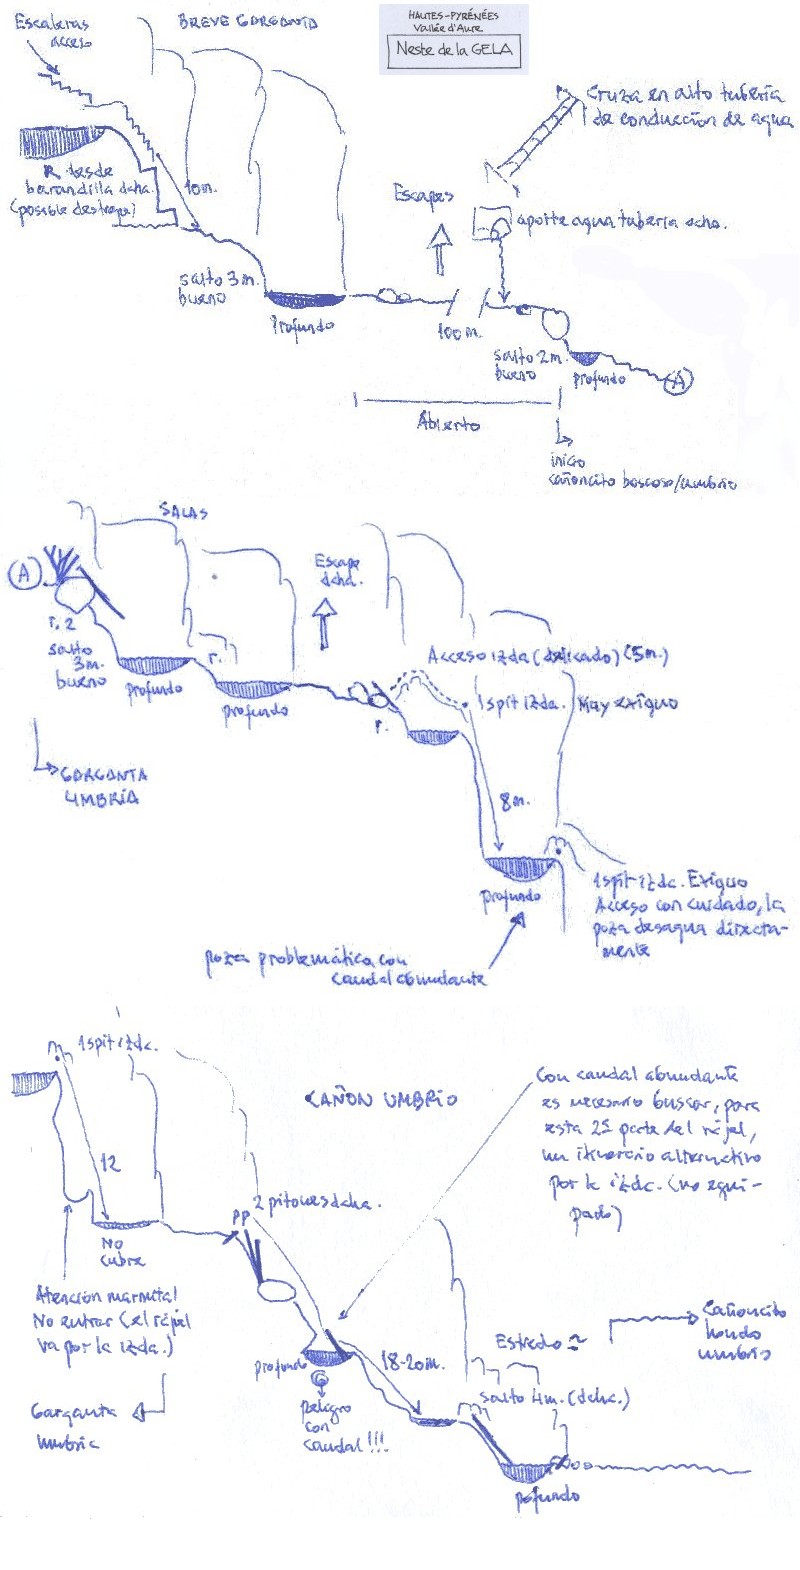 HAUTES-PYRÉNÉES
Vallée d'Aure
Neste de la GELA
Escaleras
acceso
BREVE GARGANTA
Cruza en alto tubería
de conducción de agua
R desde
barandilla dcha.
(posible destrepe)
10m.
Escapes
aporte agua tubería dcha.
salto 3m.
bueno
Profundo
100m.
salto 2m.
bueno
profundo
A
Abierto
inicio
cañoncito boscoso/umbrío
SALAS
A
Escape
dcha.
r. 2
salto
3m.
bueno
profundo
r.
profundo
Acceso izda (delicado) (5m.)
1 spit izda.
Muy exiguo
r.
GARGANTA
UMBRÍA
8m.
profundo
1 spit izda. Exiguo
Acceso con cuidado, la
poza desagua directa-
mente
poza problemática con
caudal abundante
1 spit izda.
CAÑON UMBRÍO
Con caudal abundante
es necesario buscar, para
esta 2ª parte del rápel,
un itinerario alternativo
por la izda. (no equi-
pado)
12
2 pitones dcha.
PP
No
cubre
Atención marmita!
No entrar (el rápel
va por la izda.)
profundo
18-20m.
Estrecho
Cañoncito
hondo
umbrío
peligro
con
caudal!!!
salto 4m. (dcha.)
Garganta
umbría
profundo